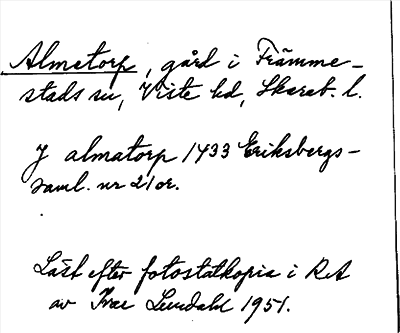 Almetorp, gård i Främme-
stads sn, Viste hd, Skarab. l.
J almatorp 1433 Eriksbergs-
saml. nr 21 or.
Läst efter fotostatkopia i RA
av Ivar Lundahl 1951.